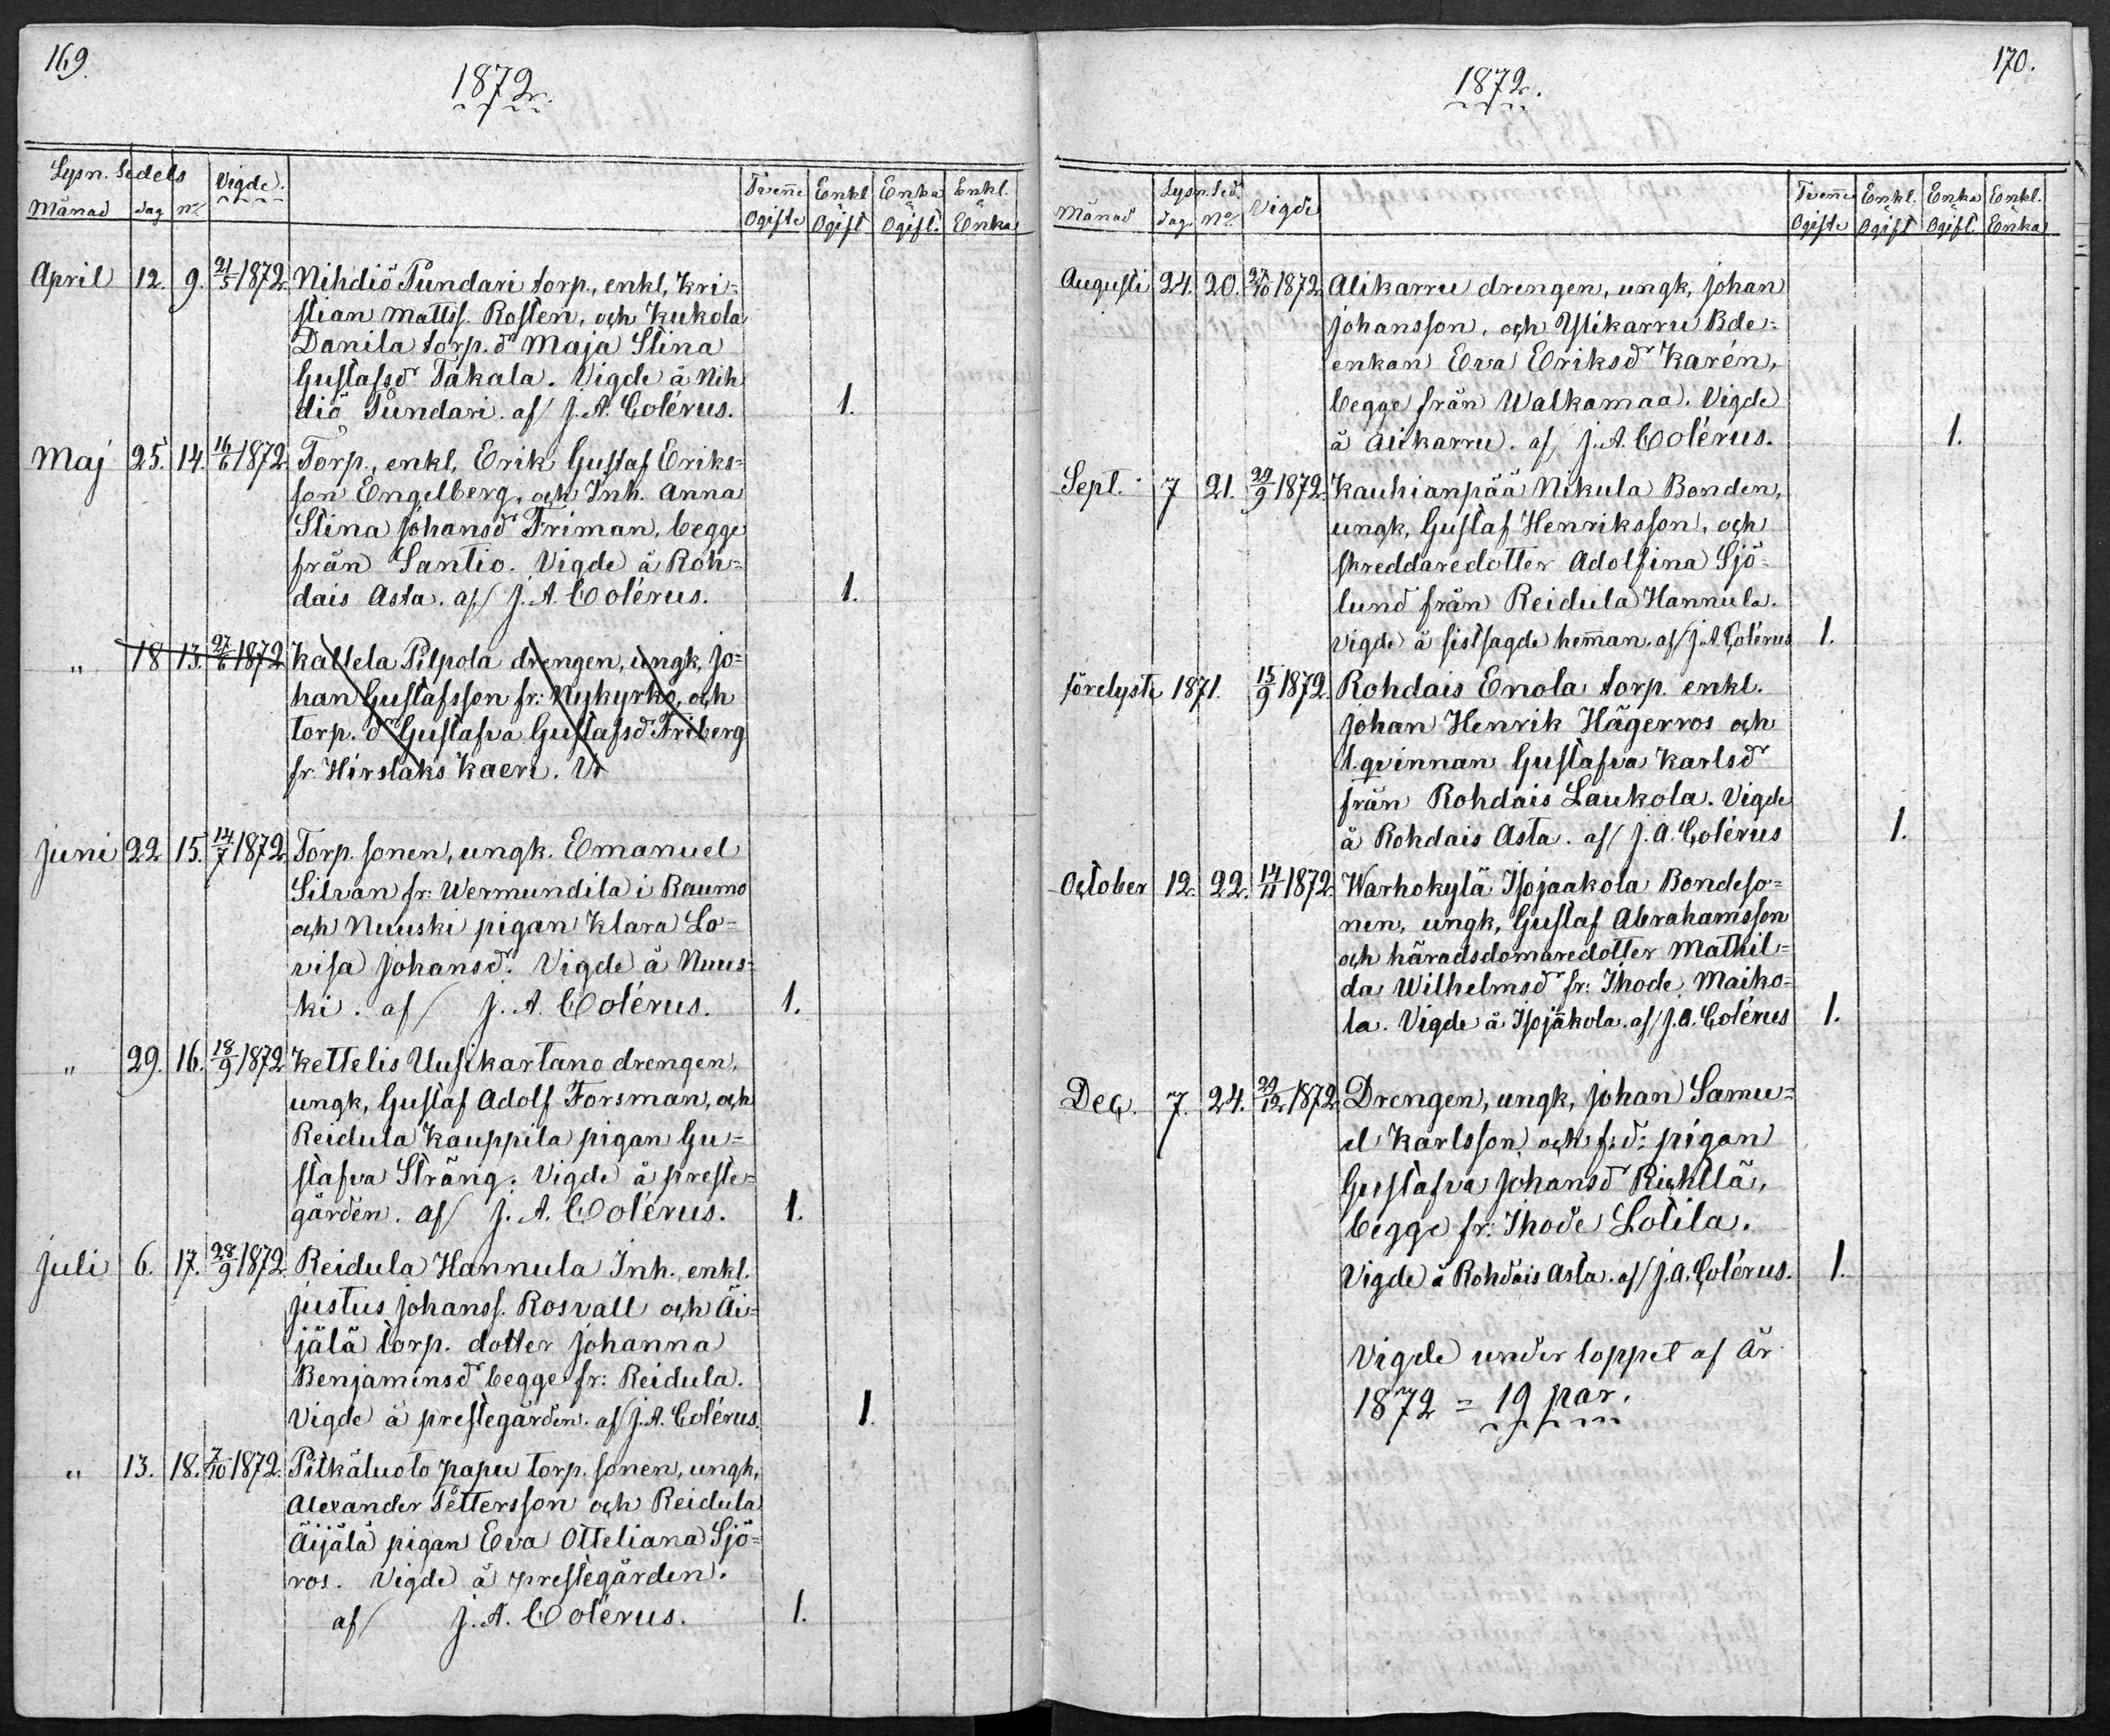 169.
1872.
Lysn. Sedels
Vigde.
Tvenne Enkl Enka Enkl.
Månad dag no
Ogifte Ogift Ogift. Enka
April 12. 9. 21/5 1872 Nihdiö Pundari torp., enkl, Kri=
stian Mattss. Rosten, och Kukola
Danila torp. dr Maja Stina
Gustafsdr Takala. Vigde å Nih
diö Pundari. af/ J. A. Colérus. 1.
Maj 25. 14. 16/6 1872. Torp., enkl, Erik Gustaf Eriks=
son Engelberg, och Inh. Anna
Stina Johansdr Friman, begge
från Santio. Vigde å Roh=
dais Asta. af/ J. A. Colérus. 1.
" 18 13. 27/6 1872 Kallela Pilpola drengen, ungk, Jo=
han Gustafsson fr: Nykyrko, och
torp. dr Gustafva Gustafsdr Friberg
fr. Hirslaks Kaeri. Vi
Juni 22 15. 14/7 1872 Torp. sonen, ungk. Emanuel
Silvan fr: Wermundila i Raumo
och Nuuski pigan Klara Lo=
visa Johansdr. Vigde å Nuus=
ki. af/ J. A. Colérus. 1.
" 29. 16. 18/9 1872 Kettelis Uusikartano drengen,
ungk, Gustaf Adolf Forsman, och
Reidula Kauppila pigan Gu=
stafva Sträng. Vigde å preste=
gården. af/ J. A. Colérus. 1.
Juli 6. 17. 28/9 1872 Reidula Hannula Inh., enkl.
Justus Johanss. Rosvall och Äi=
jälä torp. dotter Johanna
Benjaminsdr begge fr: Reidula.
Vigde å prestegården. af/ J. A. Colérus. 1.
" 13. 18. 7/10 1872. Pitkäluoto papu torp. sonen, ungk,
Alexander Pettersson och Reidula
Äijälä pigan Eva Otteliana Sjö=
ros. Vigde å prestegården.
af/ J. A. Colérus. 1.
170.
1872.
Lysn. Sed.
Tvenne Enkl. Enka Enkl.
Månad dag. No. Vigde
Ogifte Ogift Ogift. Enka
Augusti 24. 20. 27/10 1872 Alikarru drengen, ungk, Johan
Johansson, och Ylikarru Bde=
enkan Eva Eriksdr Karén,
begge från Walkamaa. Vigde
å Alikarru. af/ J. A. Colérus. 1.
Sept. 7 21. 22/9 1872 Kauhianpää Nikula Bonden,
ungk, Gustaf Henriksson, och
skreddaredotter Adolfina Sjö=
lund från Reidula Hannula.
Vigde å sistsagde hemman. af/ J. A. Colérus 1.
förelyste 1871. 15/9 1872 Rohdais Enola torp. enkl.
Johan Henrik Hägerros och
l.qvinnan Gustafva Karlsdr
från Rohdais Laukola. Vigde
å Rohdais Asta. af/ J. A. Colérus 1.
October 12. 22. 14/11 1872 Warhokylä Isojaakola Bondeso=
nen, ungk, Gustaf Abrahamsson
och häradsdomaredotter Mathil=
da Wilhelmsdr fr: Ihode Maiko=
la. Vigde å Isojäkola. af/ J. A. Colérus 1.
Dec. 7. 24. 29/12 1872 Drengen, ungk, Johan Samu=
el Karlsson och f:d: pigan
Gustafva Johansdr Richtlä,
begge fr: Ihode Lotila.
Vigde å Rohdais Asta. af/ J. A. Colérus. 1.
Vigde under loppet af År
1872 = 19 par.